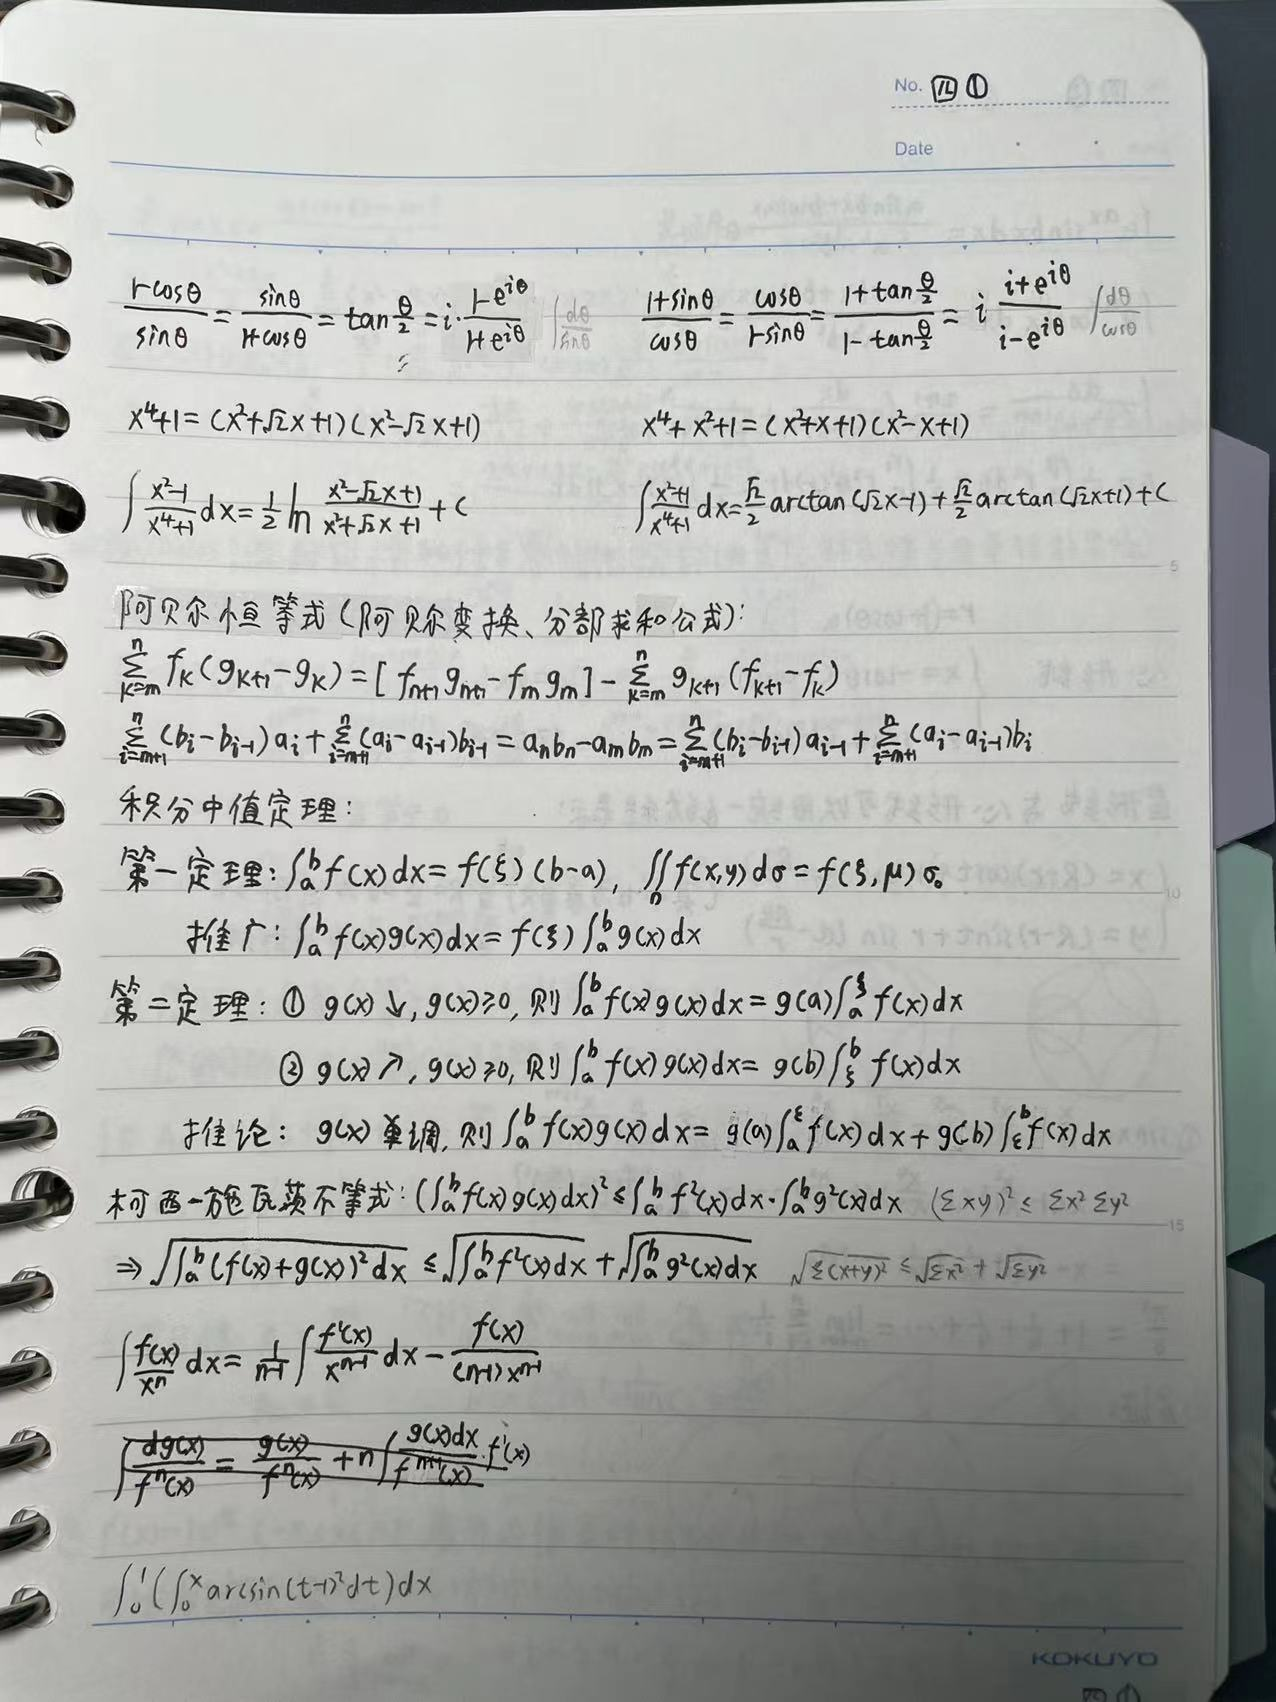 No. 四 ①
Date
(1-cosθ)/sinθ = sinθ/(1+cosθ) = tan(θ/2) = i·(1-e^{iθ})/(1+e^{iθ}) ∫dθ/sinθ (1+sinθ)/cosθ = cosθ/(1-sinθ) = (1+tan(θ/2))/(1-tan(θ/2)) = i (i+e^{iθ})/(i-e^{iθ}) ∫dθ/cosθ
x⁴+1=(x²+√2x+1)(x²-√2x+1) x⁴+x²+1=(x²+x+1)(x²-x+1)
∫(x²-1)/(x⁴+1) dx = 1/2 ln (x²-√2x+1)/(x²+√2x+1) + C ∫(x²+1)/(x⁴+1) dx = √2/2 arctan(√2x-1) + √2/2 arctan(√2x+1) + C
阿贝尔恒等式(阿贝尔变换、分部求和公式):
∑_{k=m}^{n} f_k(g_{k+1}-g_k) = [f_{n+1}g_{n+1}-f_m g_m] - ∑_{k=m}^{n} g_{k+1}(f_{k+1}-f_k)
∑_{i=m+1}^{n}(b_i-b_{i-1})a_i + ∑_{i=m+1}^{n}(a_i-a_{i-1})b_{i-1} = a_n b_n - a_m b_m = ∑_{i=m+1}^{n}(b_i-b_{i-1})a_{i-1} + ∑_{i=m+1}^{n}(a_i-a_{i-1})b_i
积分中值定理:
第一定理: ∫_a^b f(x)dx = f(ξ)(b-a), ∬_D f(x,y)dσ = f(ξ,μ)σ。
推广: ∫_a^b f(x)g(x)dx = f(ξ)∫_a^b g(x)dx
第二定理: ① g(x)↘, g(x)≥0, 则 ∫_a^b f(x)g(x)dx = g(a)∫_a^ξ f(x)dx
② g(x)↗, g(x)≥0, 则 ∫_a^b f(x)g(x)dx = g(b)∫_ξ^b f(x)dx
推论: g(x)单调, 则 ∫_a^b f(x)g(x)dx = g(a)∫_a^ξ f(x)dx + g(b)∫_ξ^b f(x)dx
柯西-施瓦茨不等式: (∫_a^b f(x)g(x)dx)² ≤ ∫_a^b f²(x)dx·∫_a^b g²(x)dx (Σxy)² ≤ Σx² Σy²
⇒ √(∫_a^b (f(x)+g(x))²dx) ≤ √(∫_a^b f²(x)dx) + √(∫_a^b g²(x)dx) √(Σ(x+y)²) ≤ √(Σx²) + √(Σy²)
∫f(x)/xⁿ dx = 1/(n-1) ∫f'(x)/x^{n-1} dx - f(x)/((n-1)x^{n-1})
∫dg(x)/fⁿ(x) = g(x)/fⁿ(x) + n∫g(x)dx/f^{n+1}(x)·f'(x)
∫_0^1(∫_0^x arcsin(t-1)²dt)dx
KOKUYO